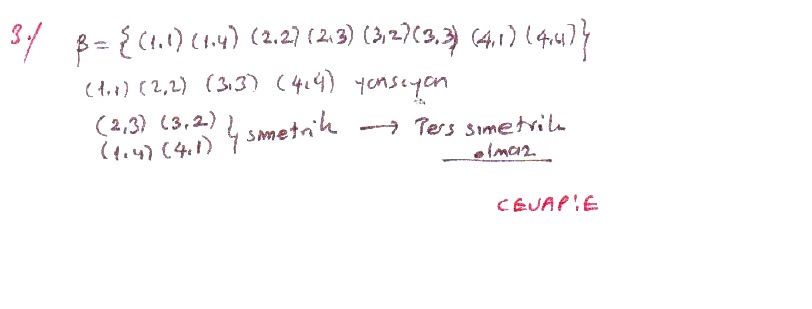 3-/ β = { (1.1) (1.4) (2.2) (2.3) (3,2) (3.3) (4,1) (4,4) }
(1,1) (2,2) (3,3) (4,4) yansıyan
(2,3) (3,2)
(1,4) (4,1) } simetrik → Ters simetrik
olmaz
CEVAP: E